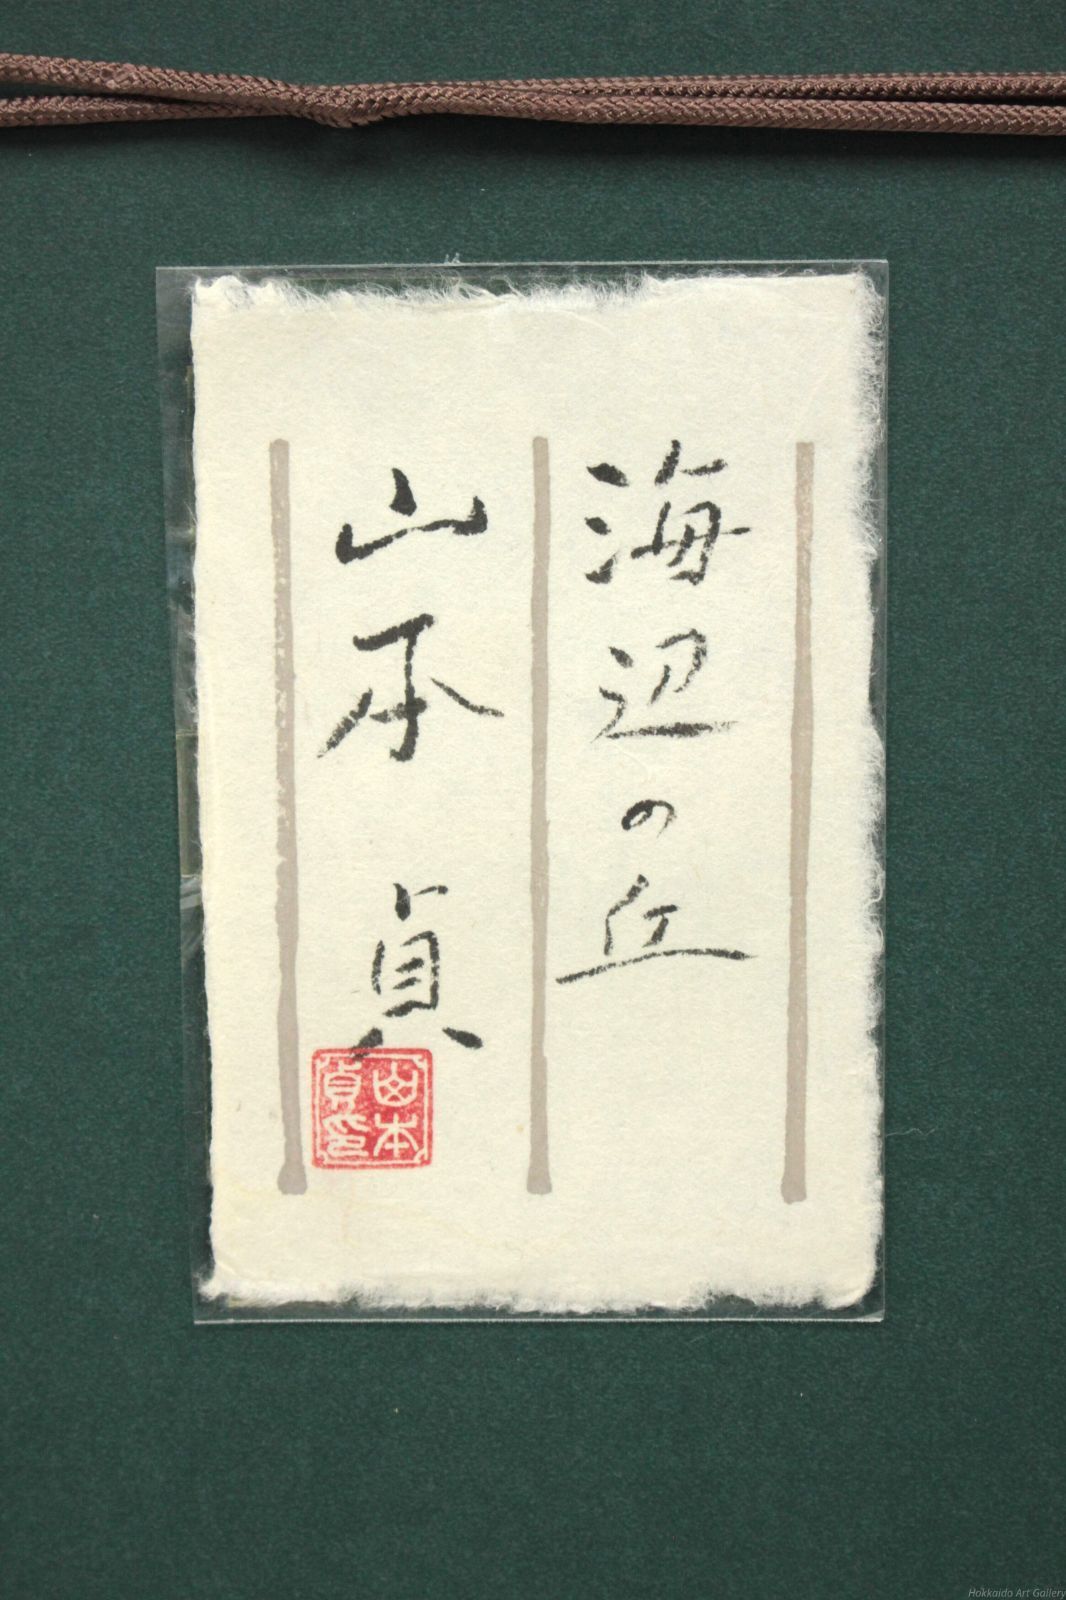 海辺の丘
山本 貞
山本
貞印
Hokkaido Art Gallery